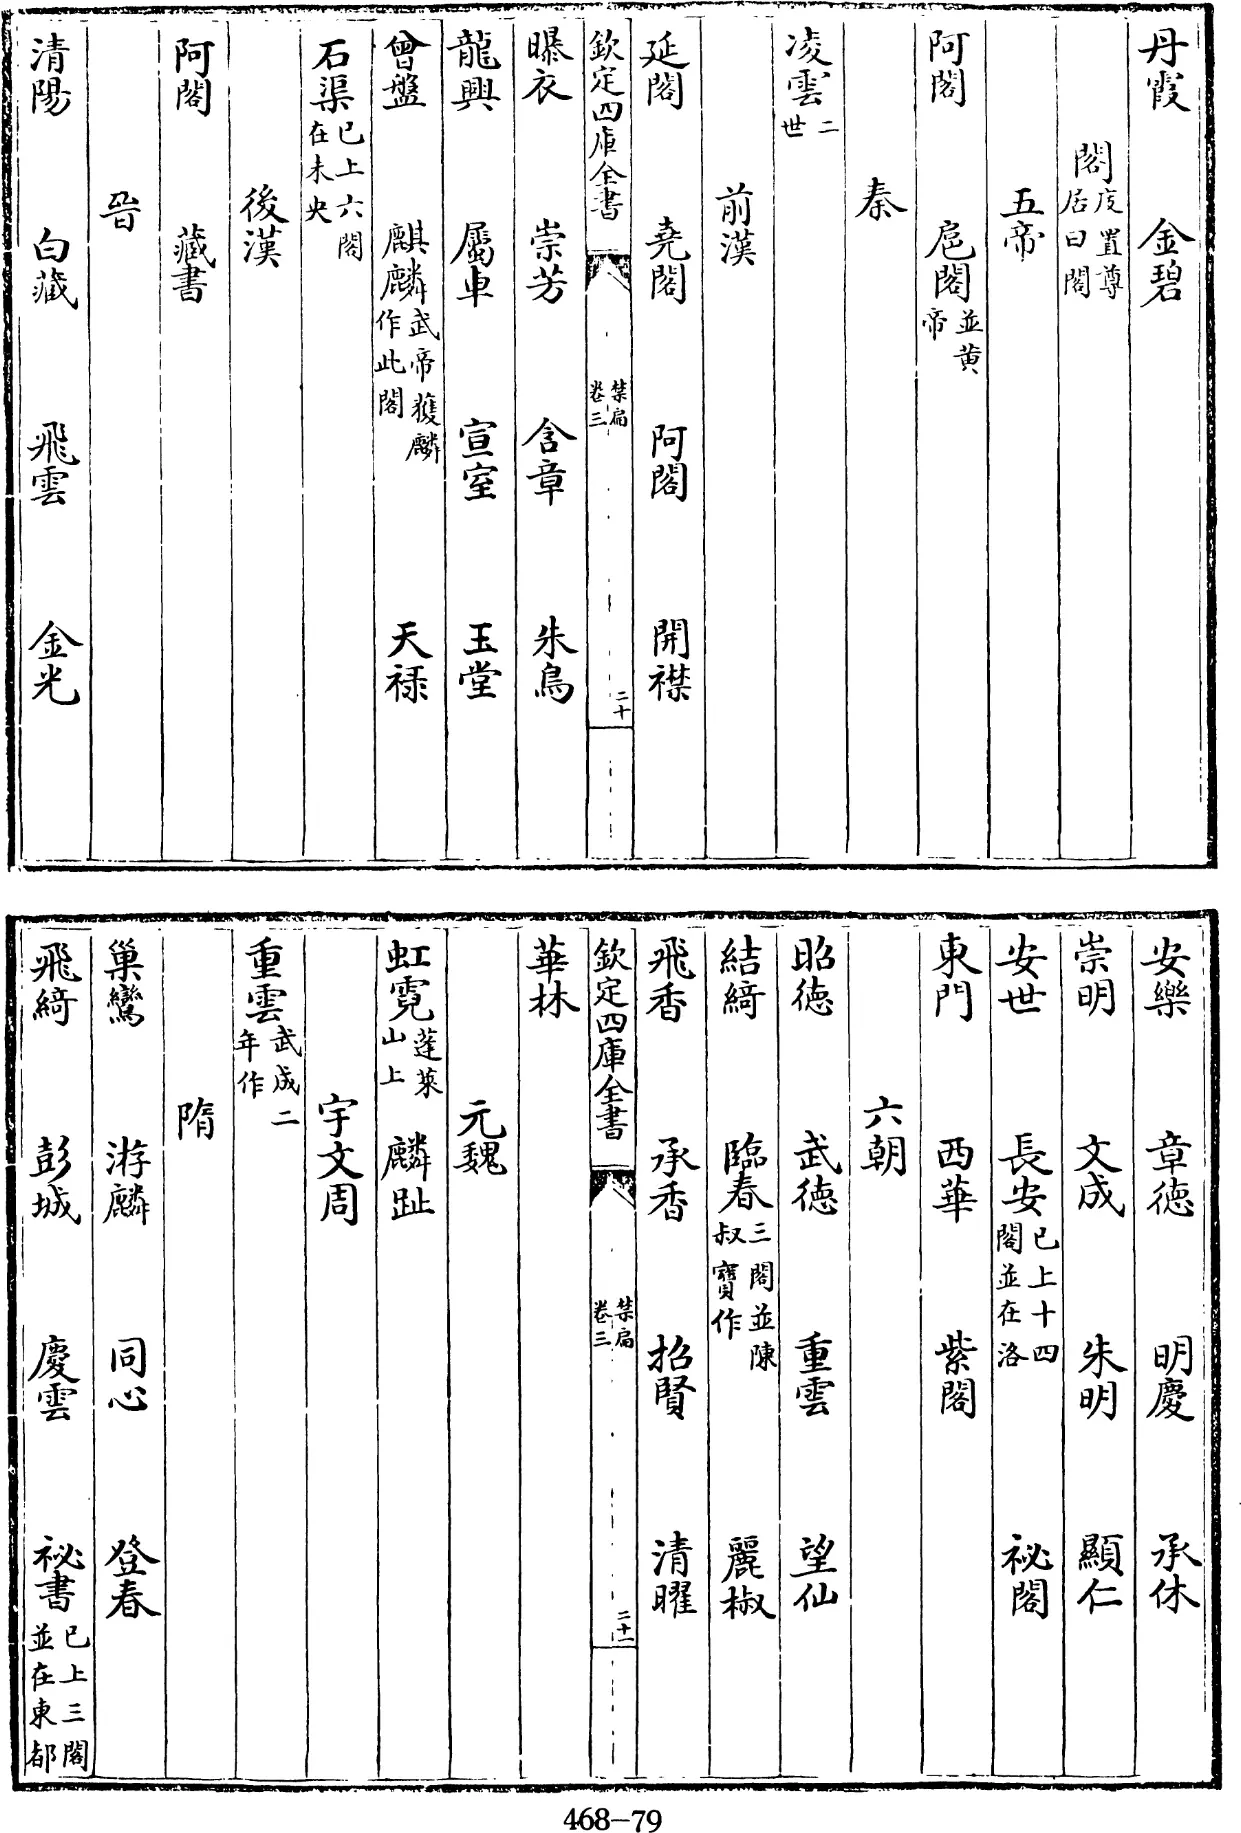 丹霞　金碧
閣庋置尊居曰閣
五帝
阿閣　扈閣並黄帝
秦
凌雲二世
前漢
延閣　堯閣　阿閣　開襟
欽定四庫全書　禁扁卷三　二十
曝衣　崇芳　含章　朱鳥
龍興　屬車　宣室　玉堂
曾盤　麒麟武帝獲麟作此閣　天禄
石渠已上六閣在未央
後漢
阿閣　藏書
晉
清陽　白藏　飛雲　金光
安樂　章徳　明慶　承休
崇明　文成　朱明　顯仁
安世　長安已上十四閣並在洛　祕閣
東門　西華　紫閣
六朝
昭徳　武徳　重雲　望仙
結綺　臨春三閣並陳叔寶作　麗椒
飛香　承香　招賢　清曜
欽定四庫全書　禁扁卷三　二十一
華林
元魏
虹霓蓬萊山上　麟趾
宇文周
重雲武成二年作
隋
巢鸞　游麟　同心　登春
飛綺　彭城　慶雲　祕書已上三閣並在東都
468-79